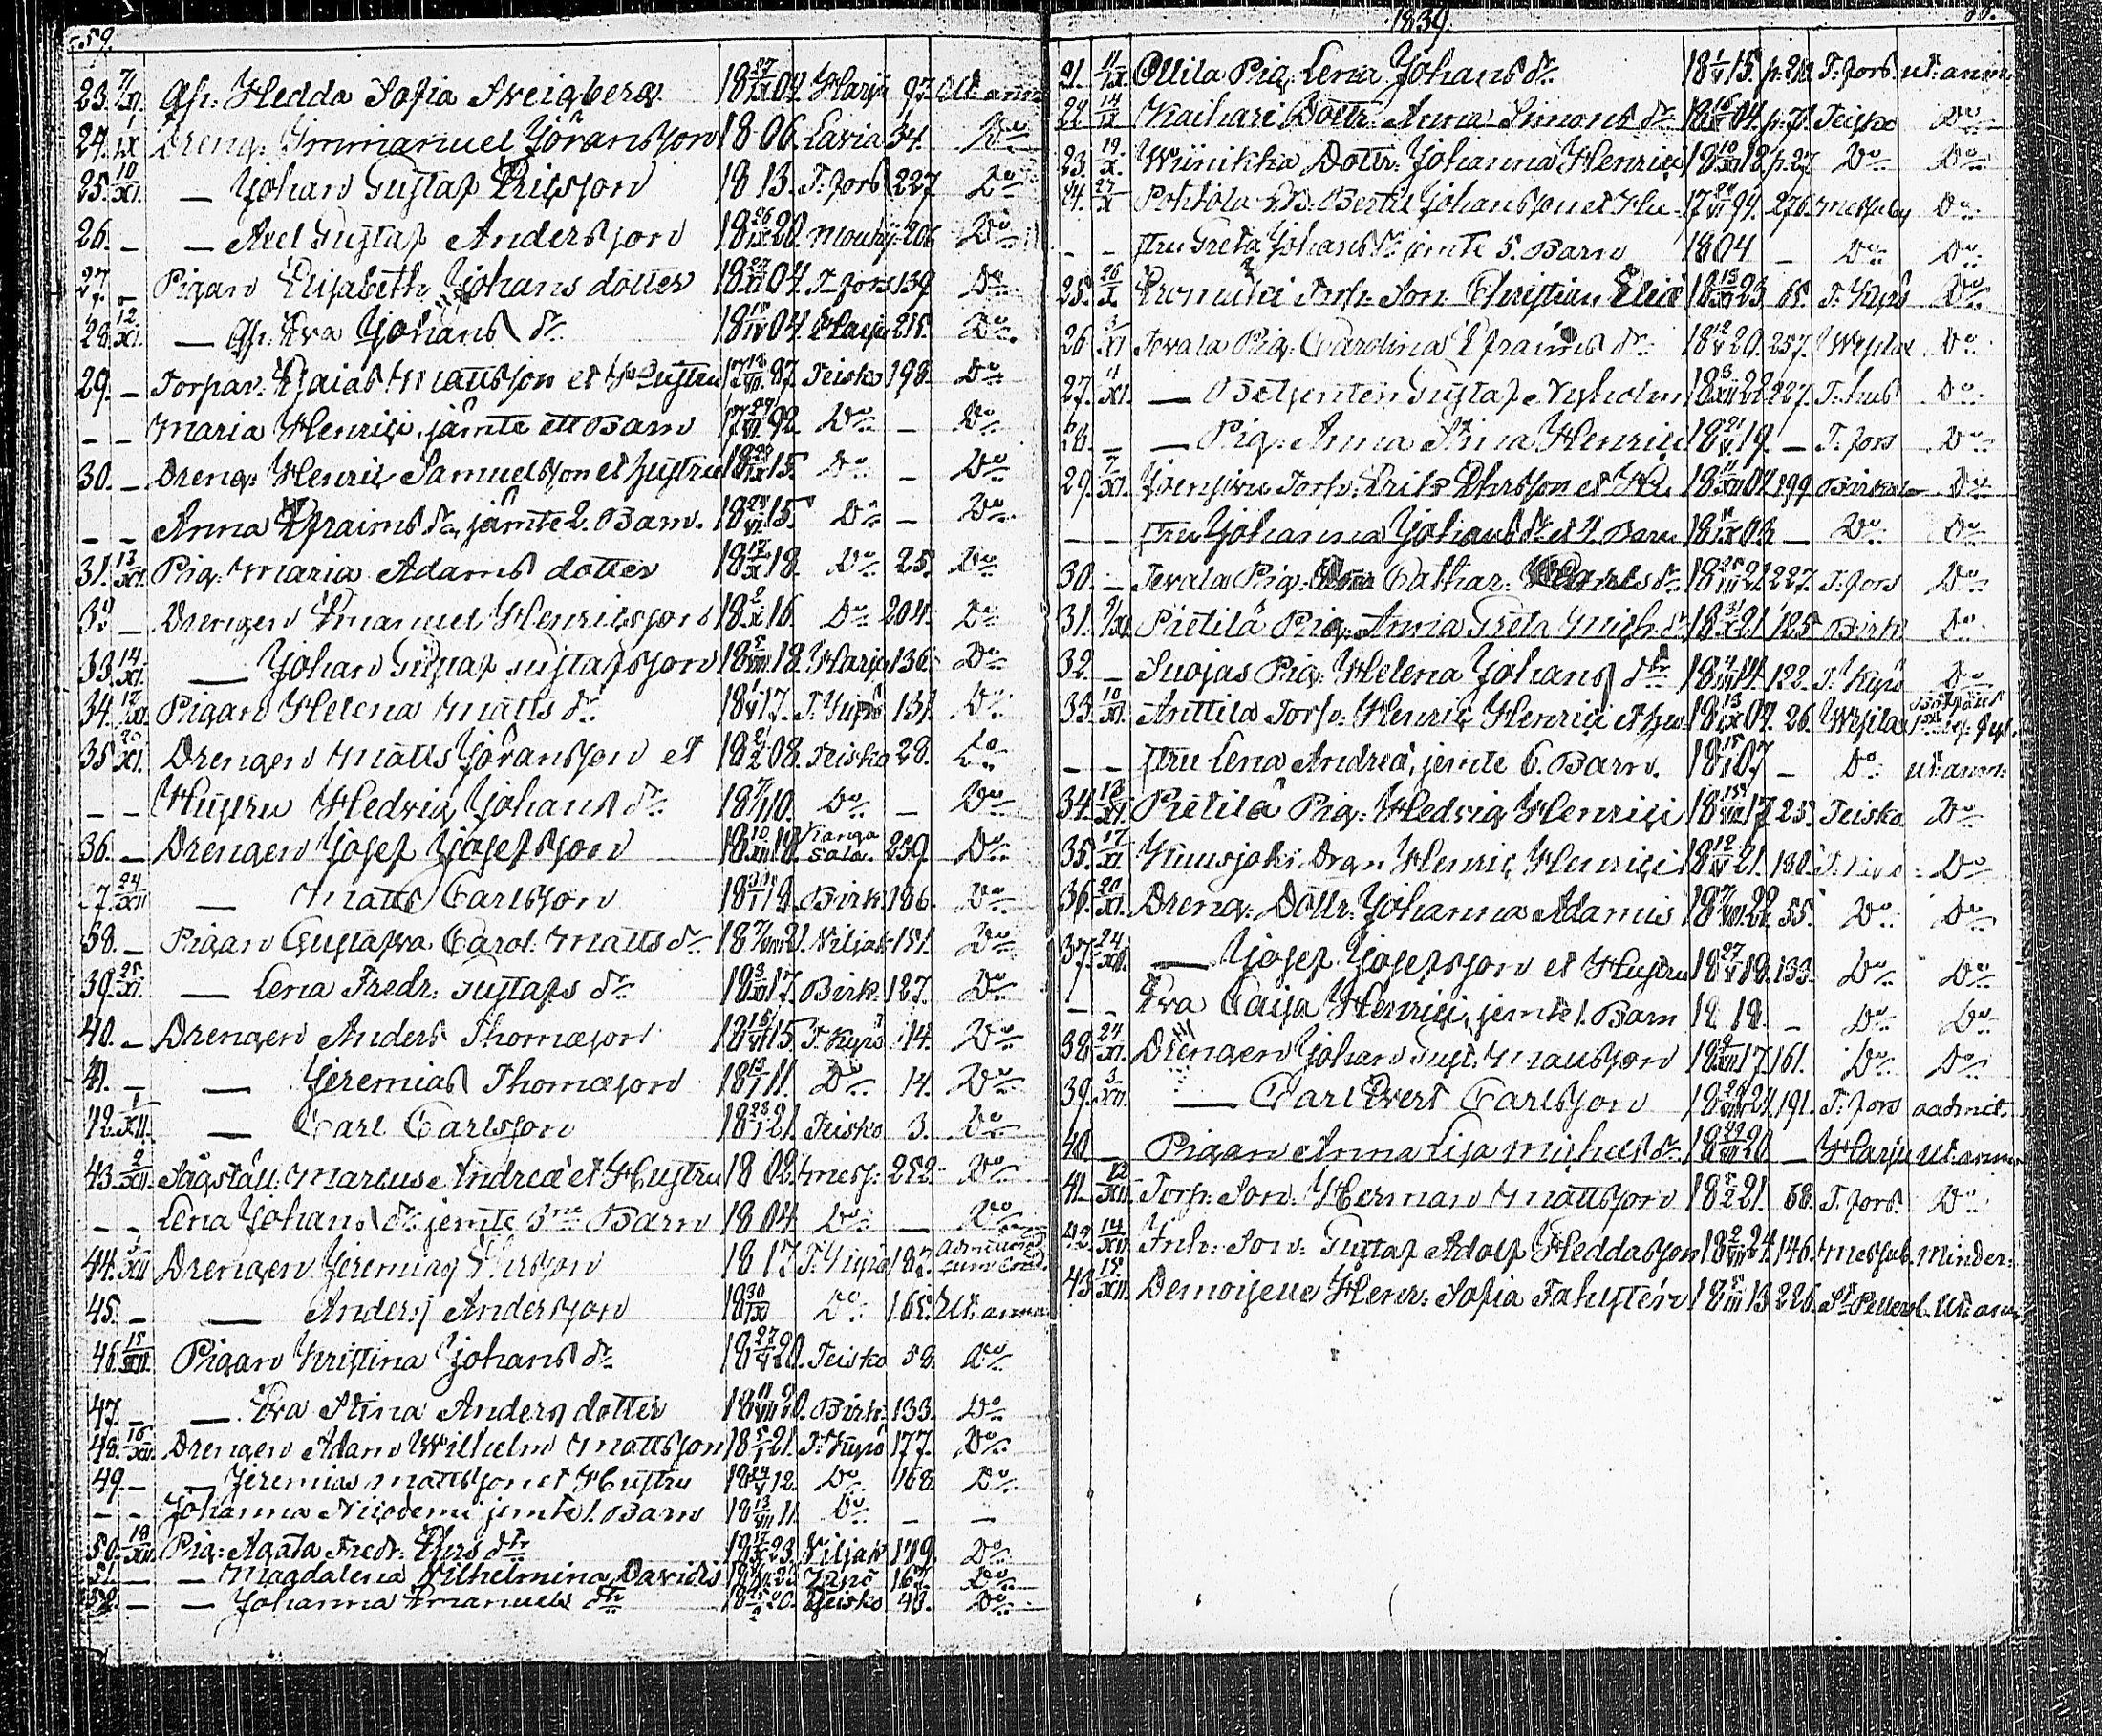 59.
23. 7/XI Gf. Hedda Sofia Sveigberg 18 27/IX 04. Harju 97. Ut. anm.
24. 1/IX Dreng. Immanuel Jöransson 18 06. Lavia 34. Do
25. 10/XI. — Johan Gustaf Ericsson 18 13. T. fors 227 Do
26. - — Axel Gustaf Andersson 18 26/IX 20. Mouhij. 206 Do
27. - Pigan Elisabeth Johans dotter 18 27/XI 04. T. fors 139 Do
28. 12/XI. — Gf. Eva Johans dr. 18 15/IV 04. Harju 215. Do
29. - Torpar. Esaias Mattsson et Hustru 17 18/VII 87. Teisko 198. Do
- - Maria Henrici, jämte ett Barn 17 29/VI 92. Do - Do
30. - Dreng. Henric Samuelsson et Hustru 18 23/IX 15. Do - Do
- - Anna Efraims dr, jämte 2. Barn. 18 24/VI 15. Do - Do
31. 13/XI. Pig. Maria Adams dotter 18 17/X 18. Do 25. Do
32 - Drengen Emanuel Henricsson 18 2/X 16. Do 204. Do
33. 14/XI. — Johan Gustaf Gustafsson 18 5/VIII 18. Harju 136. Do
34. 17/XI. Pigan Helena Matts dr. 18 1/V 17. T. Kyrö 131. Do
35. 20/XI. Drengen Matts Jöransson et 18 2/2 08. Teisko 28. Do
- - Hustru Hedvig Johans dr. 18 7/1 10. Do - Do
36. - Drengen Josef Josefsson 18 10/XII 18. Kangasala. 239. Do
37. 24/XII — Matts Carlsson 18 31/1 18. Birk. 186. Do
38. - Pigan Gustafva Carol. Matts dr 18 7/VIII 21. Viljak 151. Do
39. 25/XI. — Lena Fredr. Gustafs dr. 18 3/XI 17. Birk. 127. Do
40. - Drengen Anders Thomæson 18 16/VI 15. T. Kyrö 14. Do
41. - — Jeremias Thomæson 18 13/1 11. Do 14. Do
42. 1/XII. — Carl Carlsson 18 23/1 21. Teisko 3. Do
43. 2/XII. Marcus Andreæ et Hustru 18 02. Mess. 252. Do
- - Lena Johans dr jemte 3ne Barn 18 04. Do - Do
44. 5/XII Drengen Jeremias Ersson 18 17. T. Kyrö 187.
45. - — Anders Andersson 18 30/XI Do 165. Ut. anm.
46. 15/XII. Pigan Kristina Johans dr. 18 27/V 20. Teisko 58. Do
47. - — Eva Stina Anders dotter 18 VII 20. Birk. 133. Do
48. 16/XII. Drengen Adam Wilhelm Mattsson 18 5/1 21. T. Kyrö 177. Do
49. - — Jeremias Mattsson et Hustru 18 24/V 12. Do 168. Do
- - Johanna Nicodemi jemte 1. Barn 18 13/VII 11. Do - -
50. 18/XII. Pig. Agata Fredr. Efrs dtr 18 17/X 23. Viljak 149. Do
51. - — Magdalena Vilhelmina Davids 18 22 Kyrö 167. Do
52. - — Johanna Emanuels dtr 18 15/2 20. Teisko 43. Do
1839.
21. 11/IX. Ollila Pig. Lena Johans dr. 18 1/V 15. p. 218. T. fors. ut. anm.
22. 14/IX Kaihari Dottr. Anna Simons dr 18 04. p. 71. Teisko Do
23. 19/X. Wiinikka Dottr. Johanna Henrici 18 10/XI 18. p. 27 Do Do
24. 27/X Pohtola Bertil Johansson et Hu- 17 29/VI 94. 276. Messuby Do
- - stru Greta Johans dr jemte 5. Barn 1804 - Do Do
25. 26/X Torp. Son. Christian Eliæ 18 13/XI 23 65. T. Kyrö Do
26. 3/XI Jevala Pig. Carolina Efraims dr. 18 12/V 20. 257. Wesilax Do
27. 4/XI. — Betjenten Gustaf Nyholm 18 3/XII 22. 227. T. hus Do
28. - — Pig. Anna Stina Henrici 18 21/V 19. - T. fors Do
29. 7/XI. Torp. Erik Ehrsson et Hu- 18 XII 02. 199. Birkala Do
- - stru Johanna Johans dr et 4 Barn 18 IX 03. - Do Do
30. - Jevala Pig. Cathar. dr 18 25/III 21. 227. T. fors Do
31. 9/XI Pietilä Pig. Anna Greta Mich. dr 18 31/X 21. 125. Birk. Do
32. - Suojas Pig. Helena Johans dtr. 18 4/III 14. 122. T. Kyrö Do
33. 10/XI. Anttila Torp. Henric Henrici et Hu- 18 13/IX 07. 26. Wesilax
- - stru Lena Andreæ, jemte 6. Barn. 18 15/1 07. - Do ut. anm.
34. 12/XI. Pietilä Pig. Hedvig Henrici 18 15/VIII 17. 25. Teisko Do
35. 17/XI. Kuusjoki Drgn. Henric Henrici 18 12/IV 21. 130. Do
36. 20/XI. Dreng. Dottr. Johanna Adamis 18 7/VIII 22. 55. Do Do
37. 24/XII. — Josef Josefsson et Hustru 18 27/V 18. 133. Do Do
- - Eva Caisa Henrici, jemte 1. Barn 18 18. - Do Do
38. 24/XI. Drengen Johan Gust. Mattsson 18 2/XII 17. 161. Do Do
39. 3/XII. — Carl Evert Carlsson 18 24/VIII 21. 191. T. fors admit.
40. - Pigan Anna Lisa Michels dr. 18 20. - Harju ut anm.
41. 12/XII. Torp. Son. Herman Mattsson 18 5/2 21. 68. T. fors. Do
42. 14/XII. Inh. Son. Gustaf Adolf Heddasson 18 2/VI 24. 146. Messub. Minder.
43. 15/XII. Demoiselle Henr. Sofia Fahlstén 18 5/III 13. 226. St Petersb. Ut. anm.